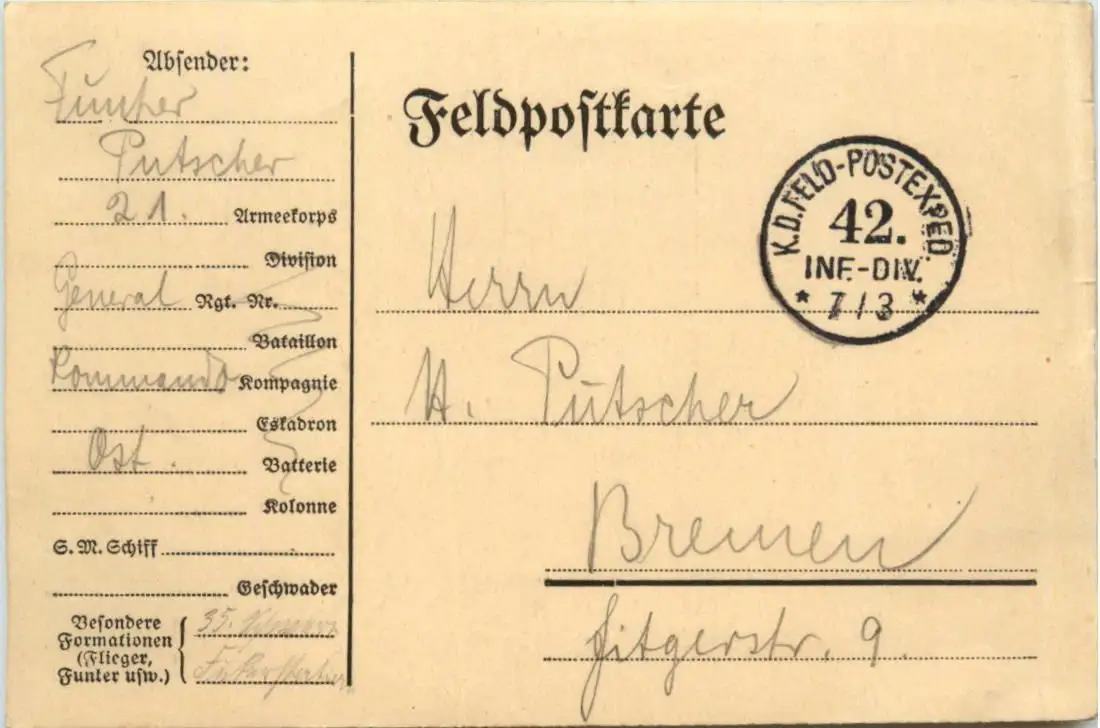 Absender:
Funker
Putscher
21. Armeekorps
Division
General Rgt. Nr.
Bataillon
Kommando Kompagnie
Eskadron
Ost. Batterie
Kolonne
S. M. Schiff
Geschwader
Besondere
Formationen
(Flieger,
Funker usw.)
35.
Feldpostkarte
K.D. FELD-POSTEXPED.
42.
INF.-DIV.
* 7/3 *
Herrn
H. Putscher
Bremen
Fitgerstr. 9.